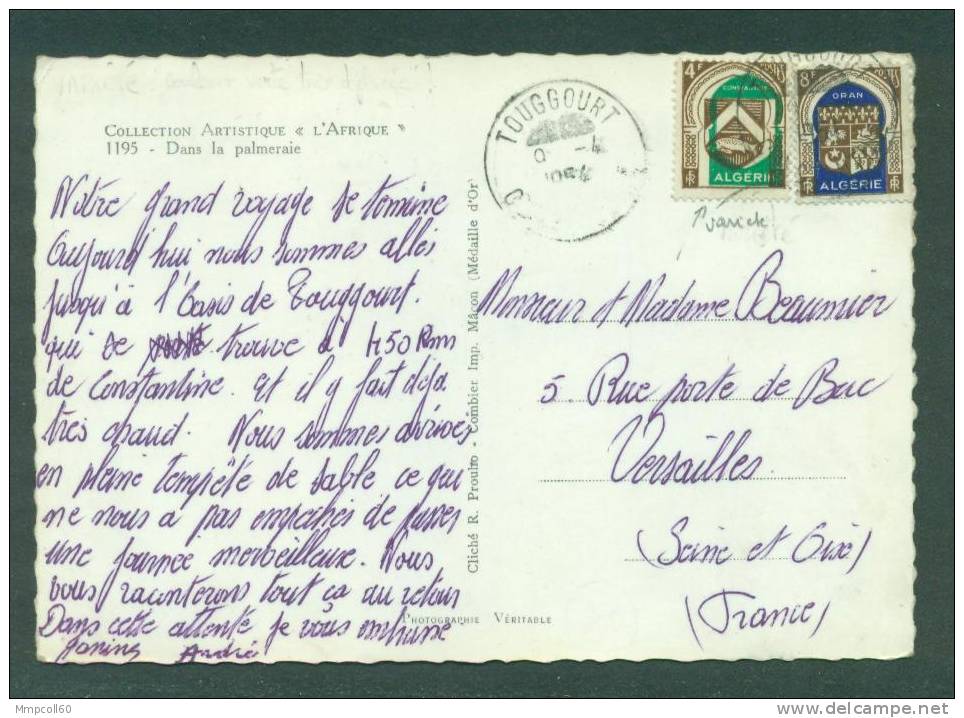 COLLECTION ARTISTIQUE « L'AFRIQUE »
1195 - Dans la palmeraie
Notre grand voyage se termine
Aujourd'hui nous sommes allés
jusqu'à l'Oasis de Touggourt.
qui se trouve à 450 Km
de Constantine. et il y fait déjà
très chaud. Nous sommes arrivés
en pleine tempête de sable ce qui
ne nous a pas empêchés de passer
une journée merveilleuse. Nous
vous raconterons tout ça au retour
Dans cette attente je vous embrasse
Janine André
Cliché R. Prouho - Combier Imp. Mâcon (Médaille d'Or)
PHOTOGRAPHIE VÉRITABLE
TOUGGOURT
4F POSTES
CONSTANTINE
ALGÉRIE
RF
8F POSTES
ORAN
ALGÉRIE
RF
Monsieur et Madame Beaumier
5 Rue porte de Buc
Versailles
(Seine et Oise)
(France)
Mmpcoll60
delcampe.net